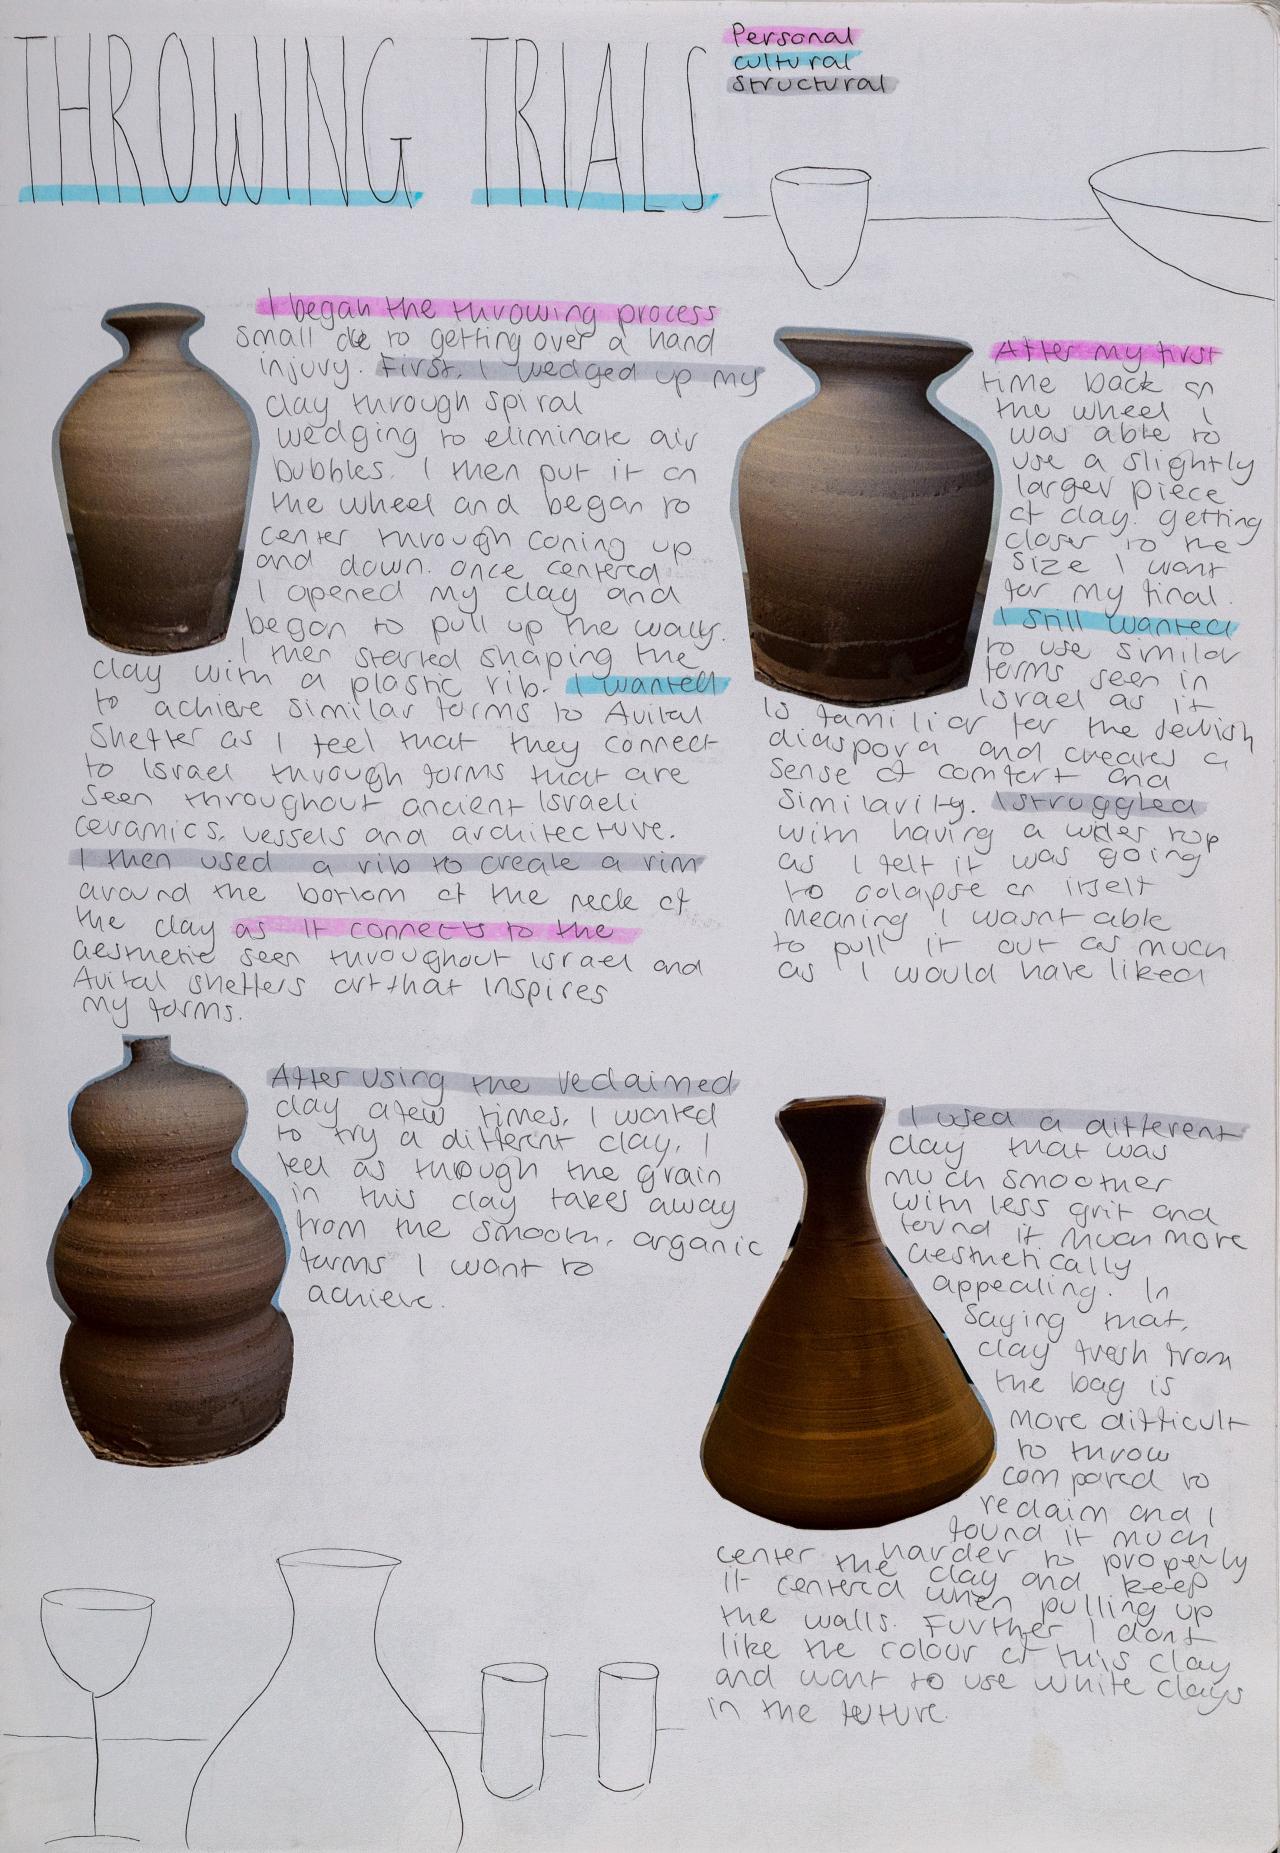 THROWING TRIALS
Personal
cultural
structural
I began the throwing process
small due to getting over a hand
injury. First, I wedged up my
clay through spiral
wedging to eliminate air
bubbles. I then put it on
the wheel and began to
center through coning up
and down. once centered
I opened my clay and
began to pull up the walls.
I then started shaping the
clay with a plastic rib. I wanted
to achieve similar forms to Avital
Shefter as I feel that they connect
to Israel through forms that are
seen throughout ancient Israeli
ceramics, vessels and architecture.
I then used a rib to create a rim
around the bottom of the neck of
the clay as it connects to the
aesthetic seen throughout Israel and
Avital shefters art that inspires
my forms.
After my first
time back on
the wheel I
was able to
use a slightly
larger piece
of clay. getting
closer to the
size I want
for my final.
I still wanted
to use similar
forms seen in
Israel as it
is familiar for the Jewish
diaspora and creates a
sense of comfort and
similarity. I struggled
with having a wider top
as I felt it was going
to colapse on itself
meaning I wasnt able
to pull it out as much
as I would have liked
After using the reclaimed
clay a few times, I wanted
to try a different clay, I
feel as through the grain
in this clay takes away
from the smooth, organic
forms I want to
achieve.
I used a different
clay that was
much smoother
with less grit and
found it much more
aesthetically
appealing. In
saying that,
clay fresh from
the bag is
more difficult
to throw
compared to
reclaim and I
found it much
harder to properly
center the clay and keep
it centered when pulling up
the walls. Further I dont
like the colour of this clay
and want to use white clays
in the future.